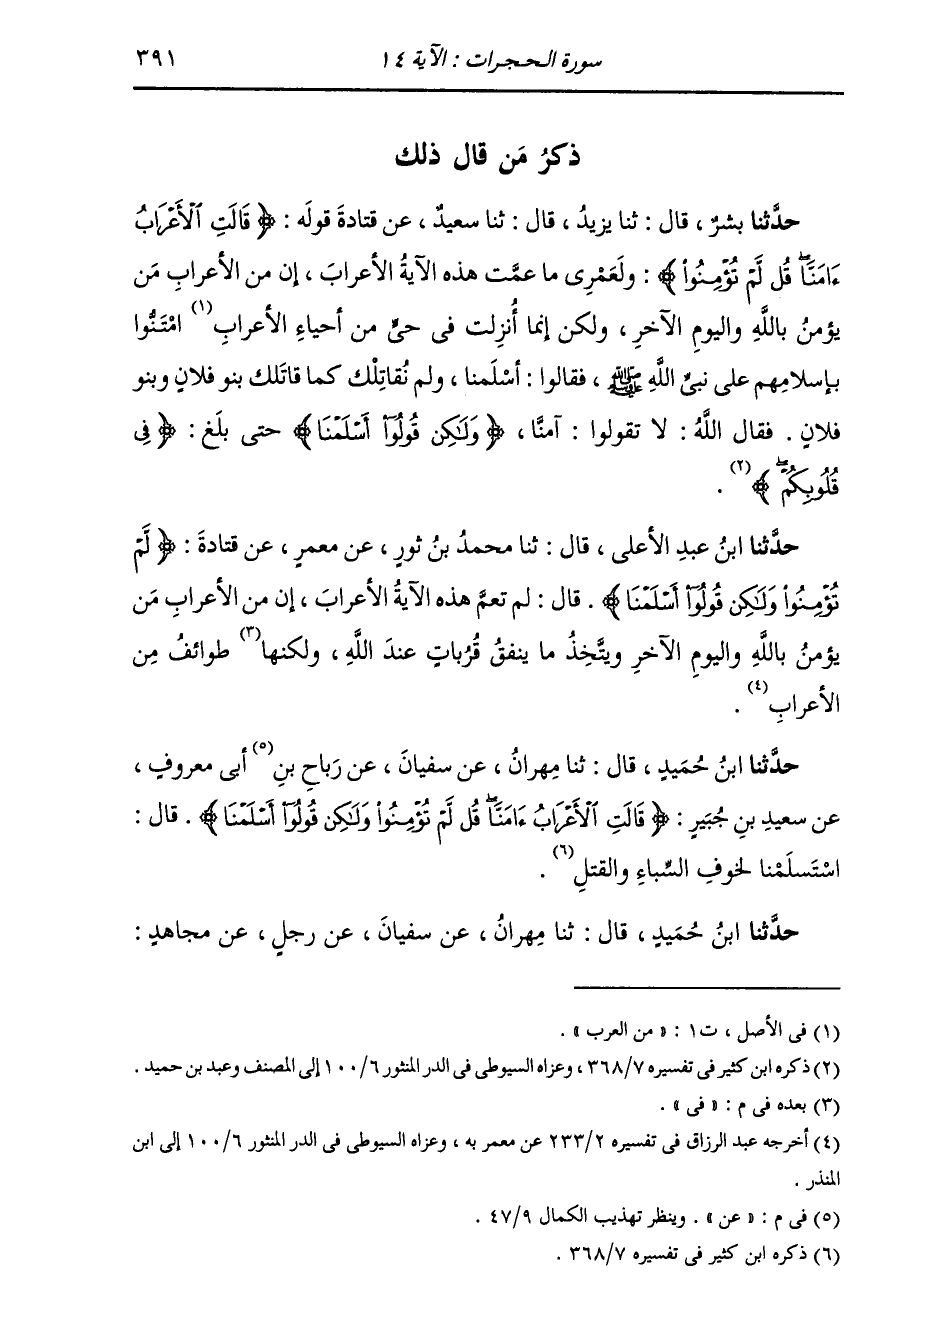 سورة الحجرات : الآية ١٤
٣٩١
ذكرُ مَن قال ذلك
حدَّثنا بشرٌ ، قال : ثنا يزيدُ ، قال : ثنا سعيدٌ ، عن قتادةَ قولَه : ﴿ قَالَتِ ٱلْأَعْرَابُ
ءَامَنَّا ۖ قُل لَّمْ تُؤْمِنُواْ ﴾ : ولَعَمْرِى ما عمَّت هذه الآيةُ الأعرابَ ، إن من الأعرابِ مَن
يؤمنُ باللَّهِ واليومِ الآخرِ ، ولكن إنما أُنزِلت فى حىٍّ من أحياءِ الأعرابِ(١) امْتَنُّوا
بإسلامِهم على نبىِّ اللَّهِ ﷺ ، فقالوا : أسْلَمنا ، ولم نُقاتِلْك كما قاتَلك بنو فلانٍ وبنو
فلانٍ . فقال اللَّهُ : لا تقولوا : آمنَّا ، ﴿ وَلَٰكِن قُولُوٓاْ أَسْلَمْنَا ﴾ حتى بلَغ : ﴿ فِى
قُلُوبِكُمْ ۖ ﴾(٢) .
حدَّثنا ابنُ عبدِ الأعلى ، قال : ثنا محمدُ بنُ ثورٍ ، عن معمرٍ ، عن قتادةَ : ﴿ لَّمْ
تُؤْمِنُواْ وَلَٰكِن قُولُوٓاْ أَسْلَمْنَا ﴾ . قال : لم تعمَّ هذه الآيةُ الأعرابَ ، إن من الأعرابِ مَن
يؤمنُ باللَّهِ واليومِ الآخرِ ويتَّخِذُ ما ينفقُ قُرُباتٍ عندَ اللَّهِ ، ولكنها(٣) طوائفُ مِن
الأعرابِ(٤) .
حدَّثنا ابنُ حُمَيدٍ ، قال : ثنا مِهرانُ ، عن سفيانَ ، عن رَباحِ بنِ(٥) أبى معروفٍ ،
عن سعيدِ بنِ جُبَيرٍ : ﴿ قَالَتِ ٱلْأَعْرَابُ ءَامَنَّا ۖ قُل لَّمْ تُؤْمِنُواْ وَلَٰكِن قُولُوٓاْ أَسْلَمْنَا ﴾ . قال :
اسْتَسلَمْنا لخوفِ السِّباءِ والقتلِ(٦) .
حدَّثنا ابنُ حُمَيدٍ ، قال : ثنا مِهرانُ ، عن سفيانَ ، عن رجلٍ ، عن مجاهدٍ :
(١) فى الأصل ، ت١ : « من العرب » .
(٢) ذكره ابن كثير فى تفسيره ٣٦٨/٧ ، وعزاه السيوطى فى الدر المنثور ١٠٠/٦ إلى المصنف وعبد بن حميد .
(٣) بعده فى م : « فى » .
(٤) أخرجه عبد الرزاق فى تفسيره ٢٣٣/٢ عن معمر به ، وعزاه السيوطى فى الدر المنثور ١٠٠/٦ إلى ابن
المنذر .
(٥) فى م : « عن » . وينظر تهذيب الكمال ٤٧/٩ .
(٦) ذكره ابن كثير فى تفسيره ٣٦٨/٧ .